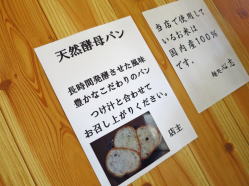 天然酵母パン
長時間発酵させた風味
豊かなこだわりのパン
つけ汁と合わせて
お召し上がりください。
店主
当店で使用して
いるお米は
国内産100%
です。
麺や心志